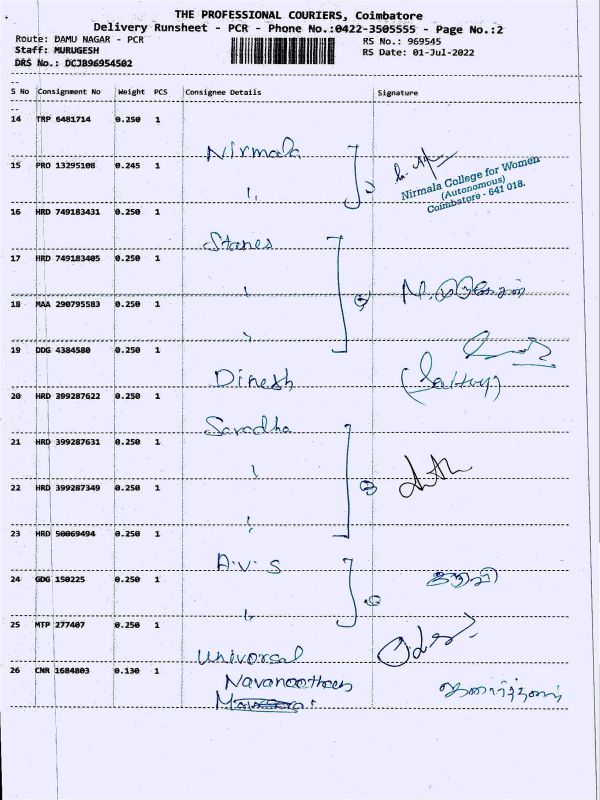 THE PROFESSIONAL COURIERS, Coimbatore
Delivery Runsheet - PCR - Phone No.:0422-3505555 - Page No.:2
Route: DAMU NAGAR - PCR
RS No.: 969545
Staff: MURUGESH
RS Date: 01-Jul-2022
DRS No.: DCJB96954502
S No Consignment No Weight PCS Consignee Details Signature
14 TRP 6481714 0.250 1
Nirmala
15 PRO 13295108 0.245 1
Nirmala College for Women
(Autonomous)
Coimbatore - 641 018.
16 HRD 749183431 0.250 1
Stanes
17 HRD 749183405 0.250 1
18 MAA 290795583 0.250 1
19 DDG 4384580 0.250 1
Dinesh
20 HRD 399287622 0.250 1
Saradha
21 HRD 399287631 0.250 1
22 HRD 399287349 0.250 1
23 HRD 50069494 0.250 1
A.V.S
24 GDG 150225 0.250 1
25 MTP 277407 0.250 1
Universal
26 CNR 1684803 0.130 1